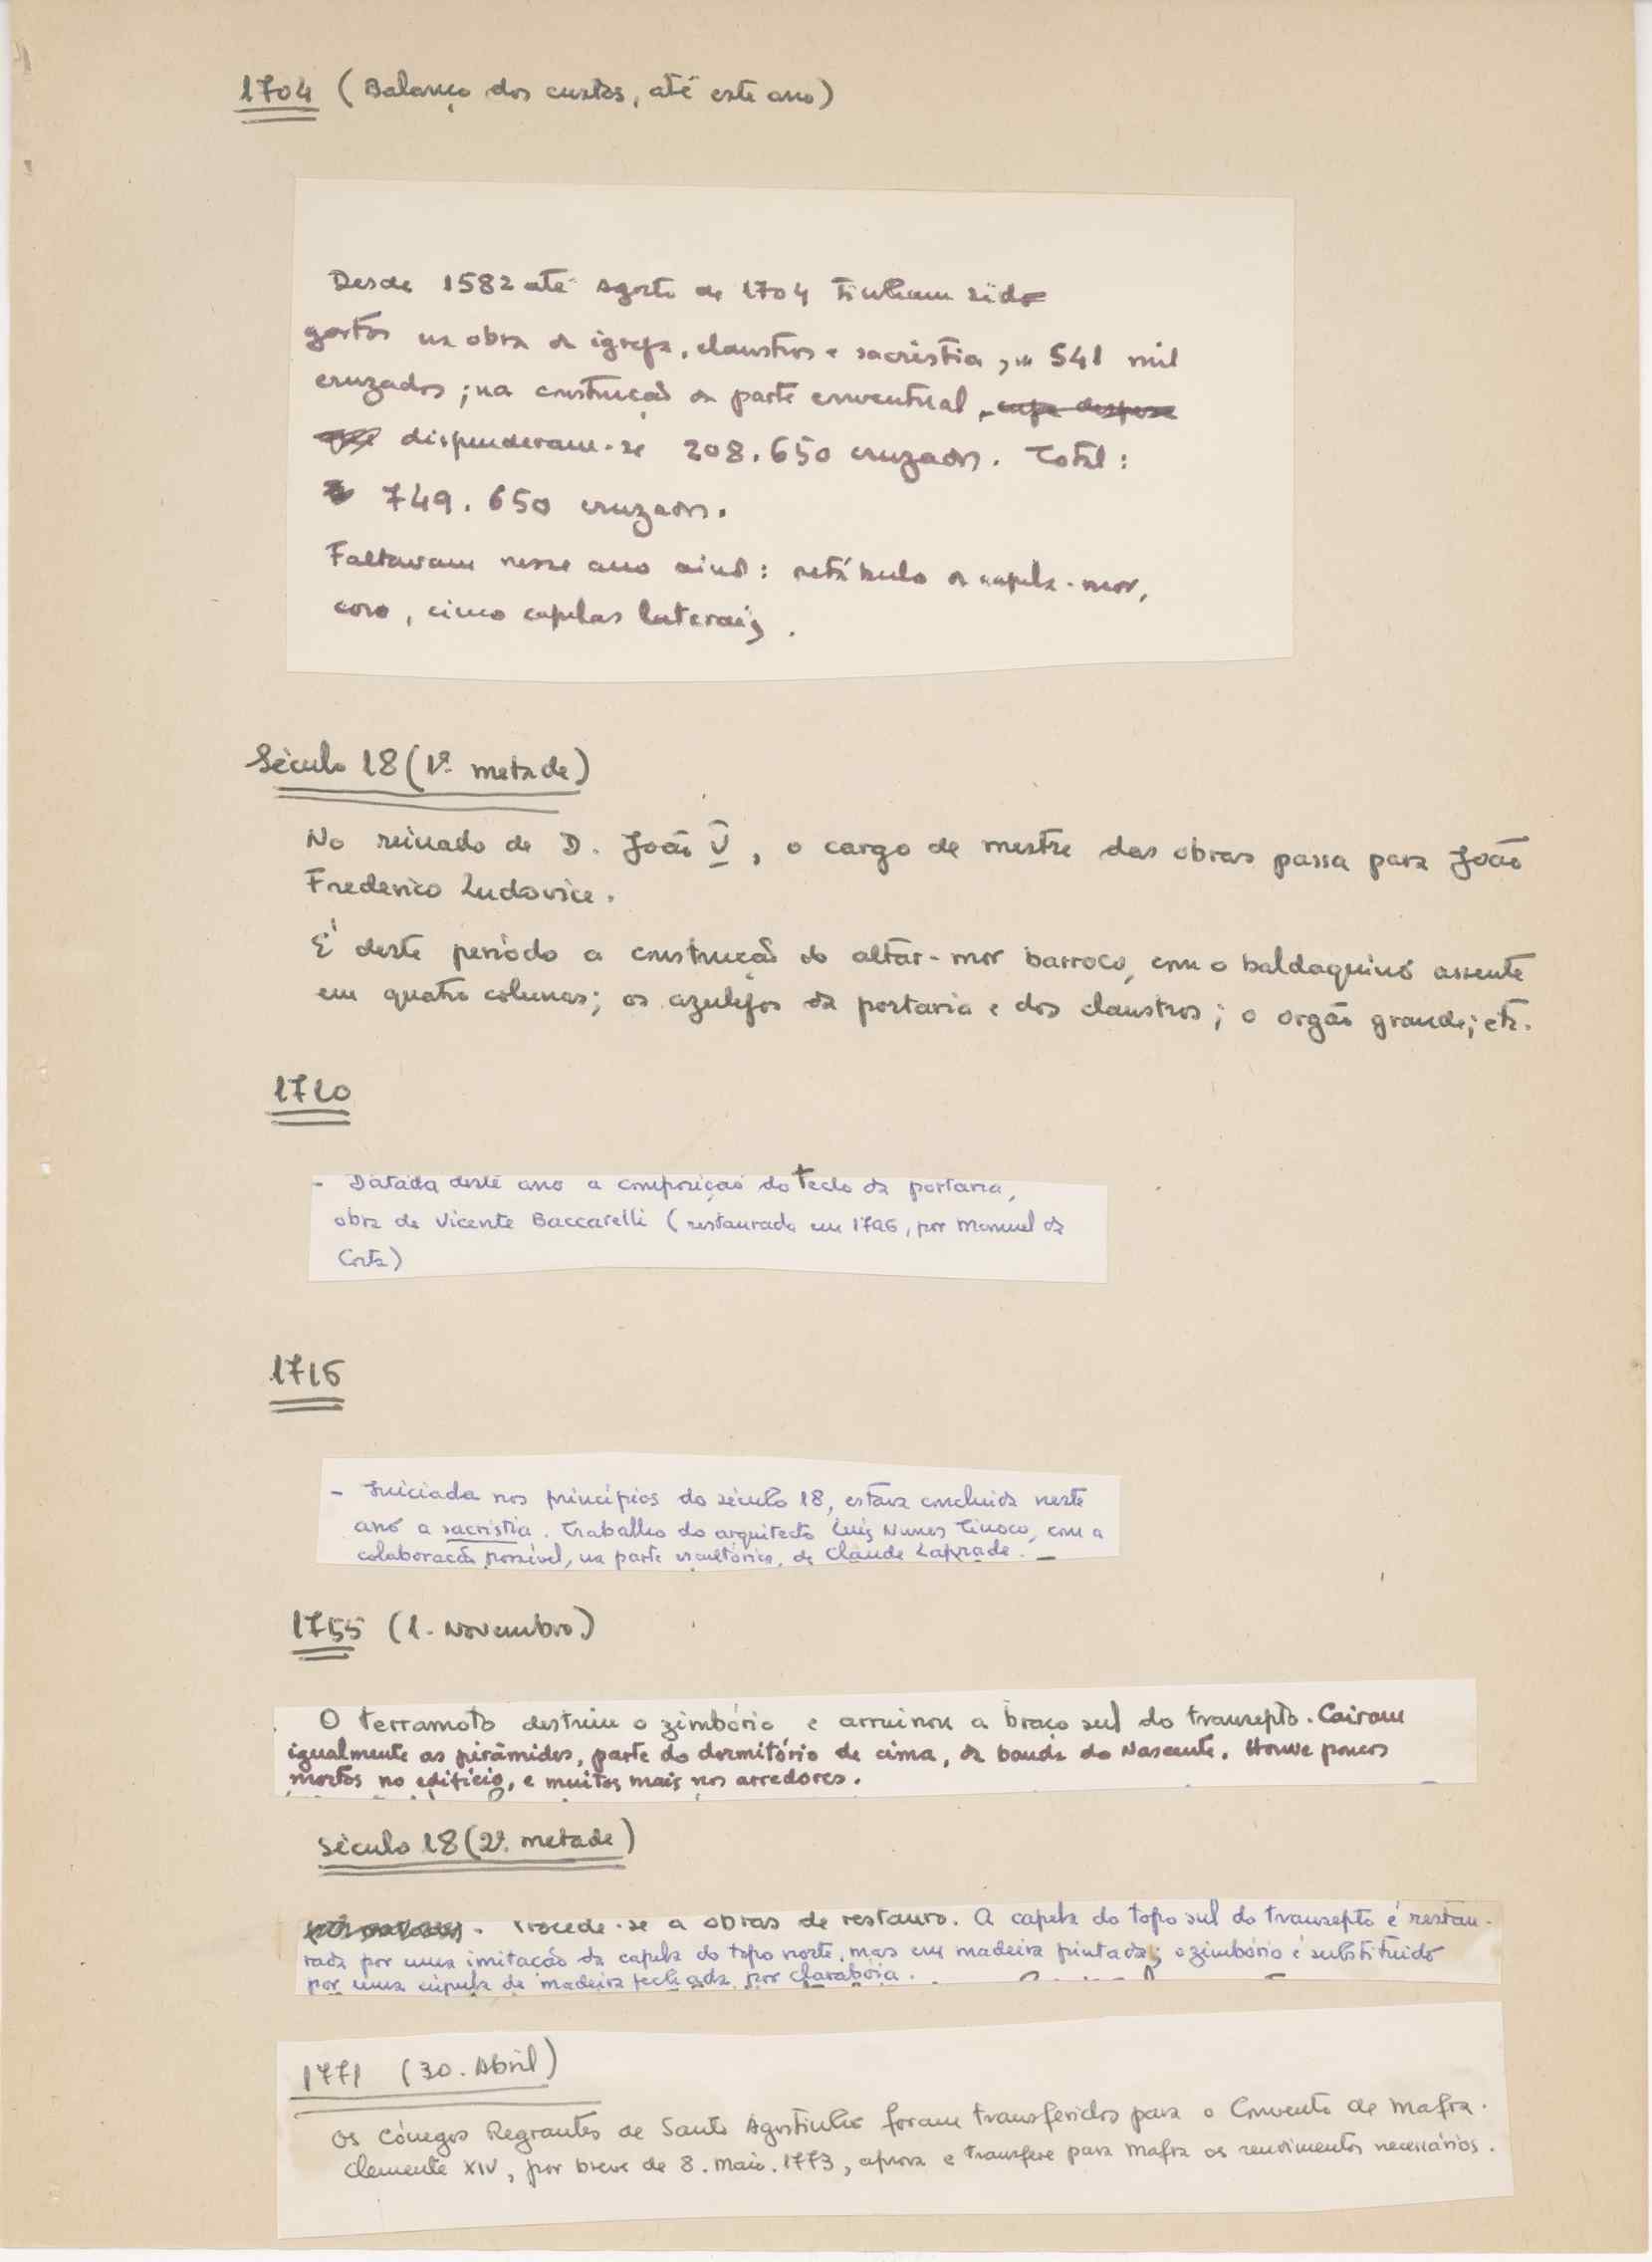 1704 (Balanço dos custos, até este ano)
Desde 1582 até Agosto de 1704 tinham sido
gastos na obra da igreja, claustros e sacristia, 541 mil
cruzados; na construção da parte conventual,
dispenderam-se 208.650 cruzados. Total:
749.650 cruzados.
Faltavam nesse ano ainda: retábulo da capela-mor,
coro, cinco capelas laterais.
Século 18 (1ª. metade)
No reinado de D. João V, o cargo de mestre das obras passa para João
Frederico Ludovice.
É deste período a construção do altar-mor barroco, com o baldaquino assente
em quatro colunas; os azulejos da portaria e dos claustros; o orgão grande; etc.
1710
- Datada deste ano a composição do tecto da portaria,
obra de Vicente Baccarelli (restaurada em 1796, por Manuel da
Costa)
1716
- Iniciada nos princípios do século 18, estava concluida neste
ano a sacristia. Trabalho do arquitecto Luis Nunes Tinoco, com a
colaboração possível, na parte escultórica, de Claude Laprade. -
1755 (1. Novembro)
O terramoto destruiu o zimbório e arruinou a braço sul do transepto. Cairam
igualmente as pirâmides, parte do dormitório de cima, da banda do Nascente. Houve poucos
mortos no edifício, e muitos mais nos arredores.
Século 18 (2ª. metade)
Procede-se a obras de restauro. A capela do topo sul do transepto é restau-
rada por uma imitação da capela do topo norte, mas em madeira pintada; o zimbório é substituido
por uma cúpula de madeira fechada por clarabóia.
1771 (30. Abril)
Os Cónegos Regrantes de Santo Agostinho foram transferidos para o Convento de Mafra.
Clemente XIV, por breve de 8. Maio. 1773, aprova e transfere para Mafra os rendimentos necessários.